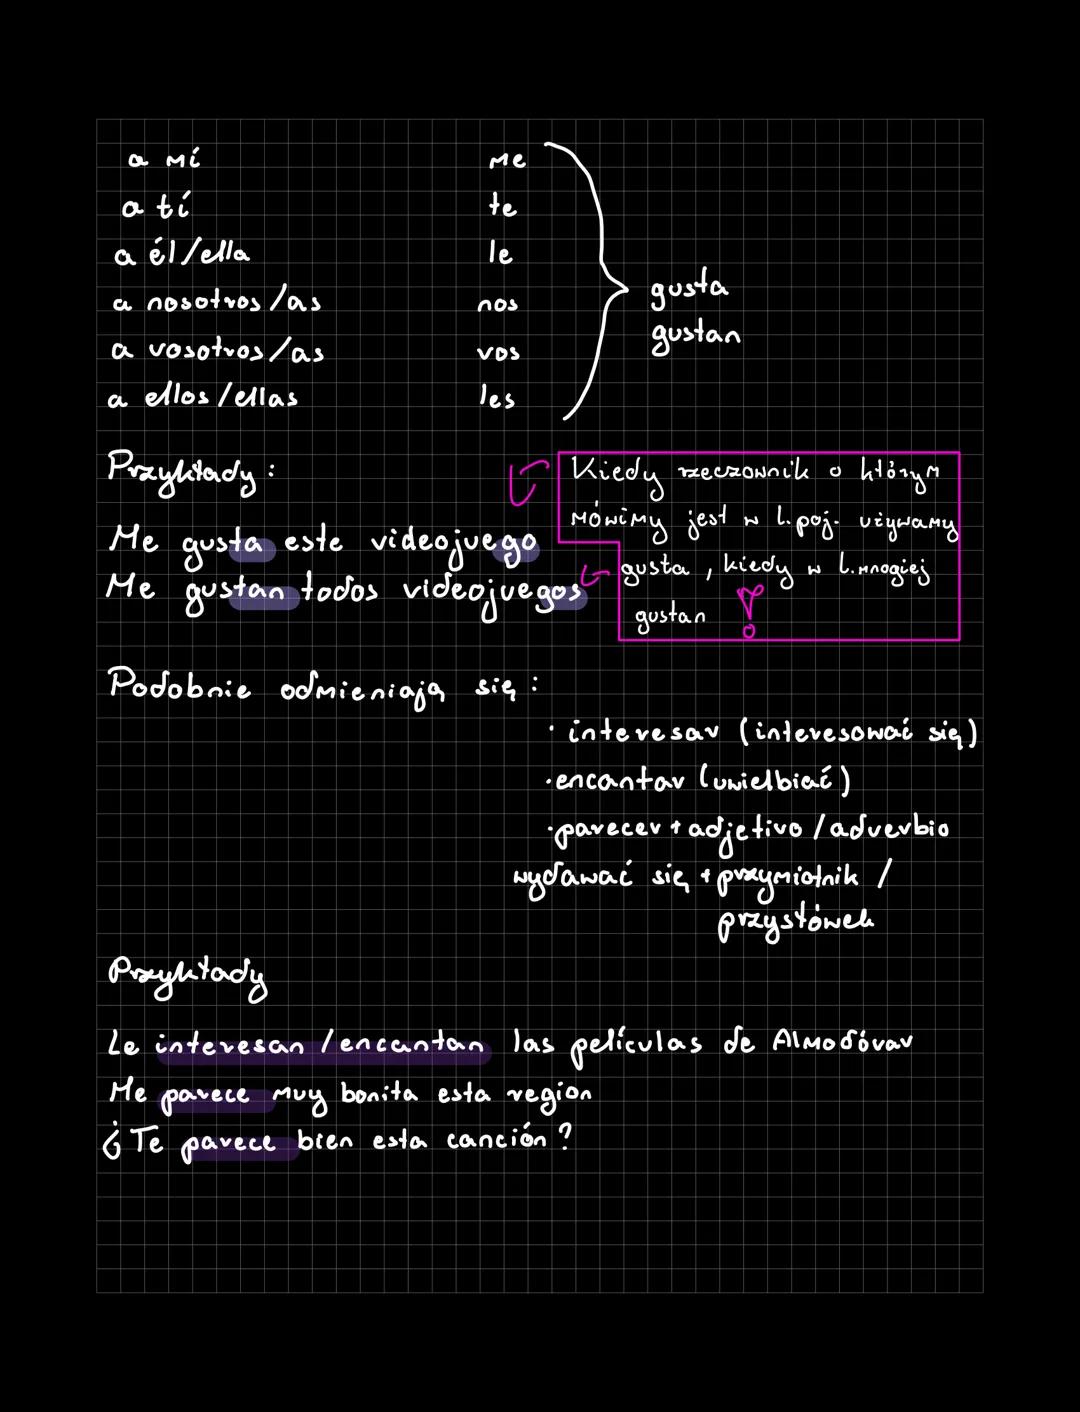 a mí me
a tí te
a él/ella le
a nosotros/as nos
a vosotros/as vos
a ellos/ellas les
gusta
gustan
Przykłady:
Kiedy rzeczownik o którym
mówimy jest w l.poj. używamy
gusta, kiedy w l.mnogiej
gustan !
Me gusta este videojuego
Me gustan todos videojuegos
Podobnie odmieniają się:
· interesar (interesować się)
· encantar (uwielbiać)
· parecer + adjetivo / adverbio
wydawać się + przymiotnik /
przysłówek
Przykłady
Le interesan / encantan las películas de Almodóvar
Me parece muy bonita esta region
¿Te parece bien esta canción?